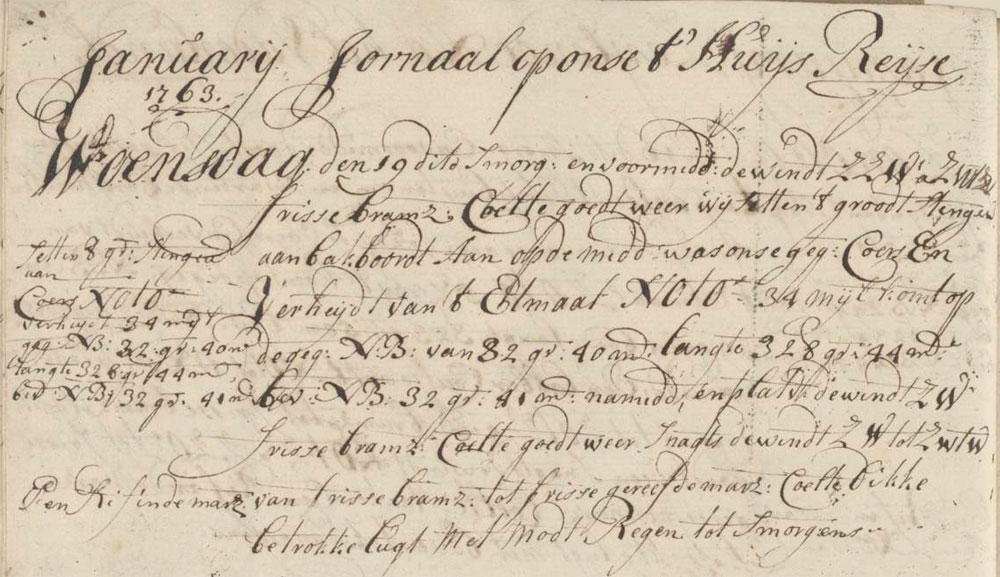 Januarij Jornaal op onse t' Huijs Reijse
1763.
Woensdag den 19 dito Smorg: en voormidd: de windt ZZW a ZW
frisse bramz: Coelte goedt weer wij setten t groodt Stengen
setten t gr: Stengen aan bakboordt Aan op de midd: was onse geg: Coers En
aan
Coers NOtO verheydt van t Etmaal NOtO 34 mijl komt op
verheydt 34 mijl
geg: NB: 32: gr: 40 m de geg: N:B: van 32 gr: 40 m: langte 328 gr: 44 m:
langte 328 gr: 44 m
bev NB: 32 gr: 41 m: bev: NB: 32 gr: 41 m: namidd: en platv: de windt ZW
frisse bramz: Coelte goedt weer Snagts de windt ZW tot ZWtW
Een Rif inde marz: van frisse bramz: tot frisse gereefde marz: Coelte dikke
betrokke lugt Met Modt Regen tot Smorgens